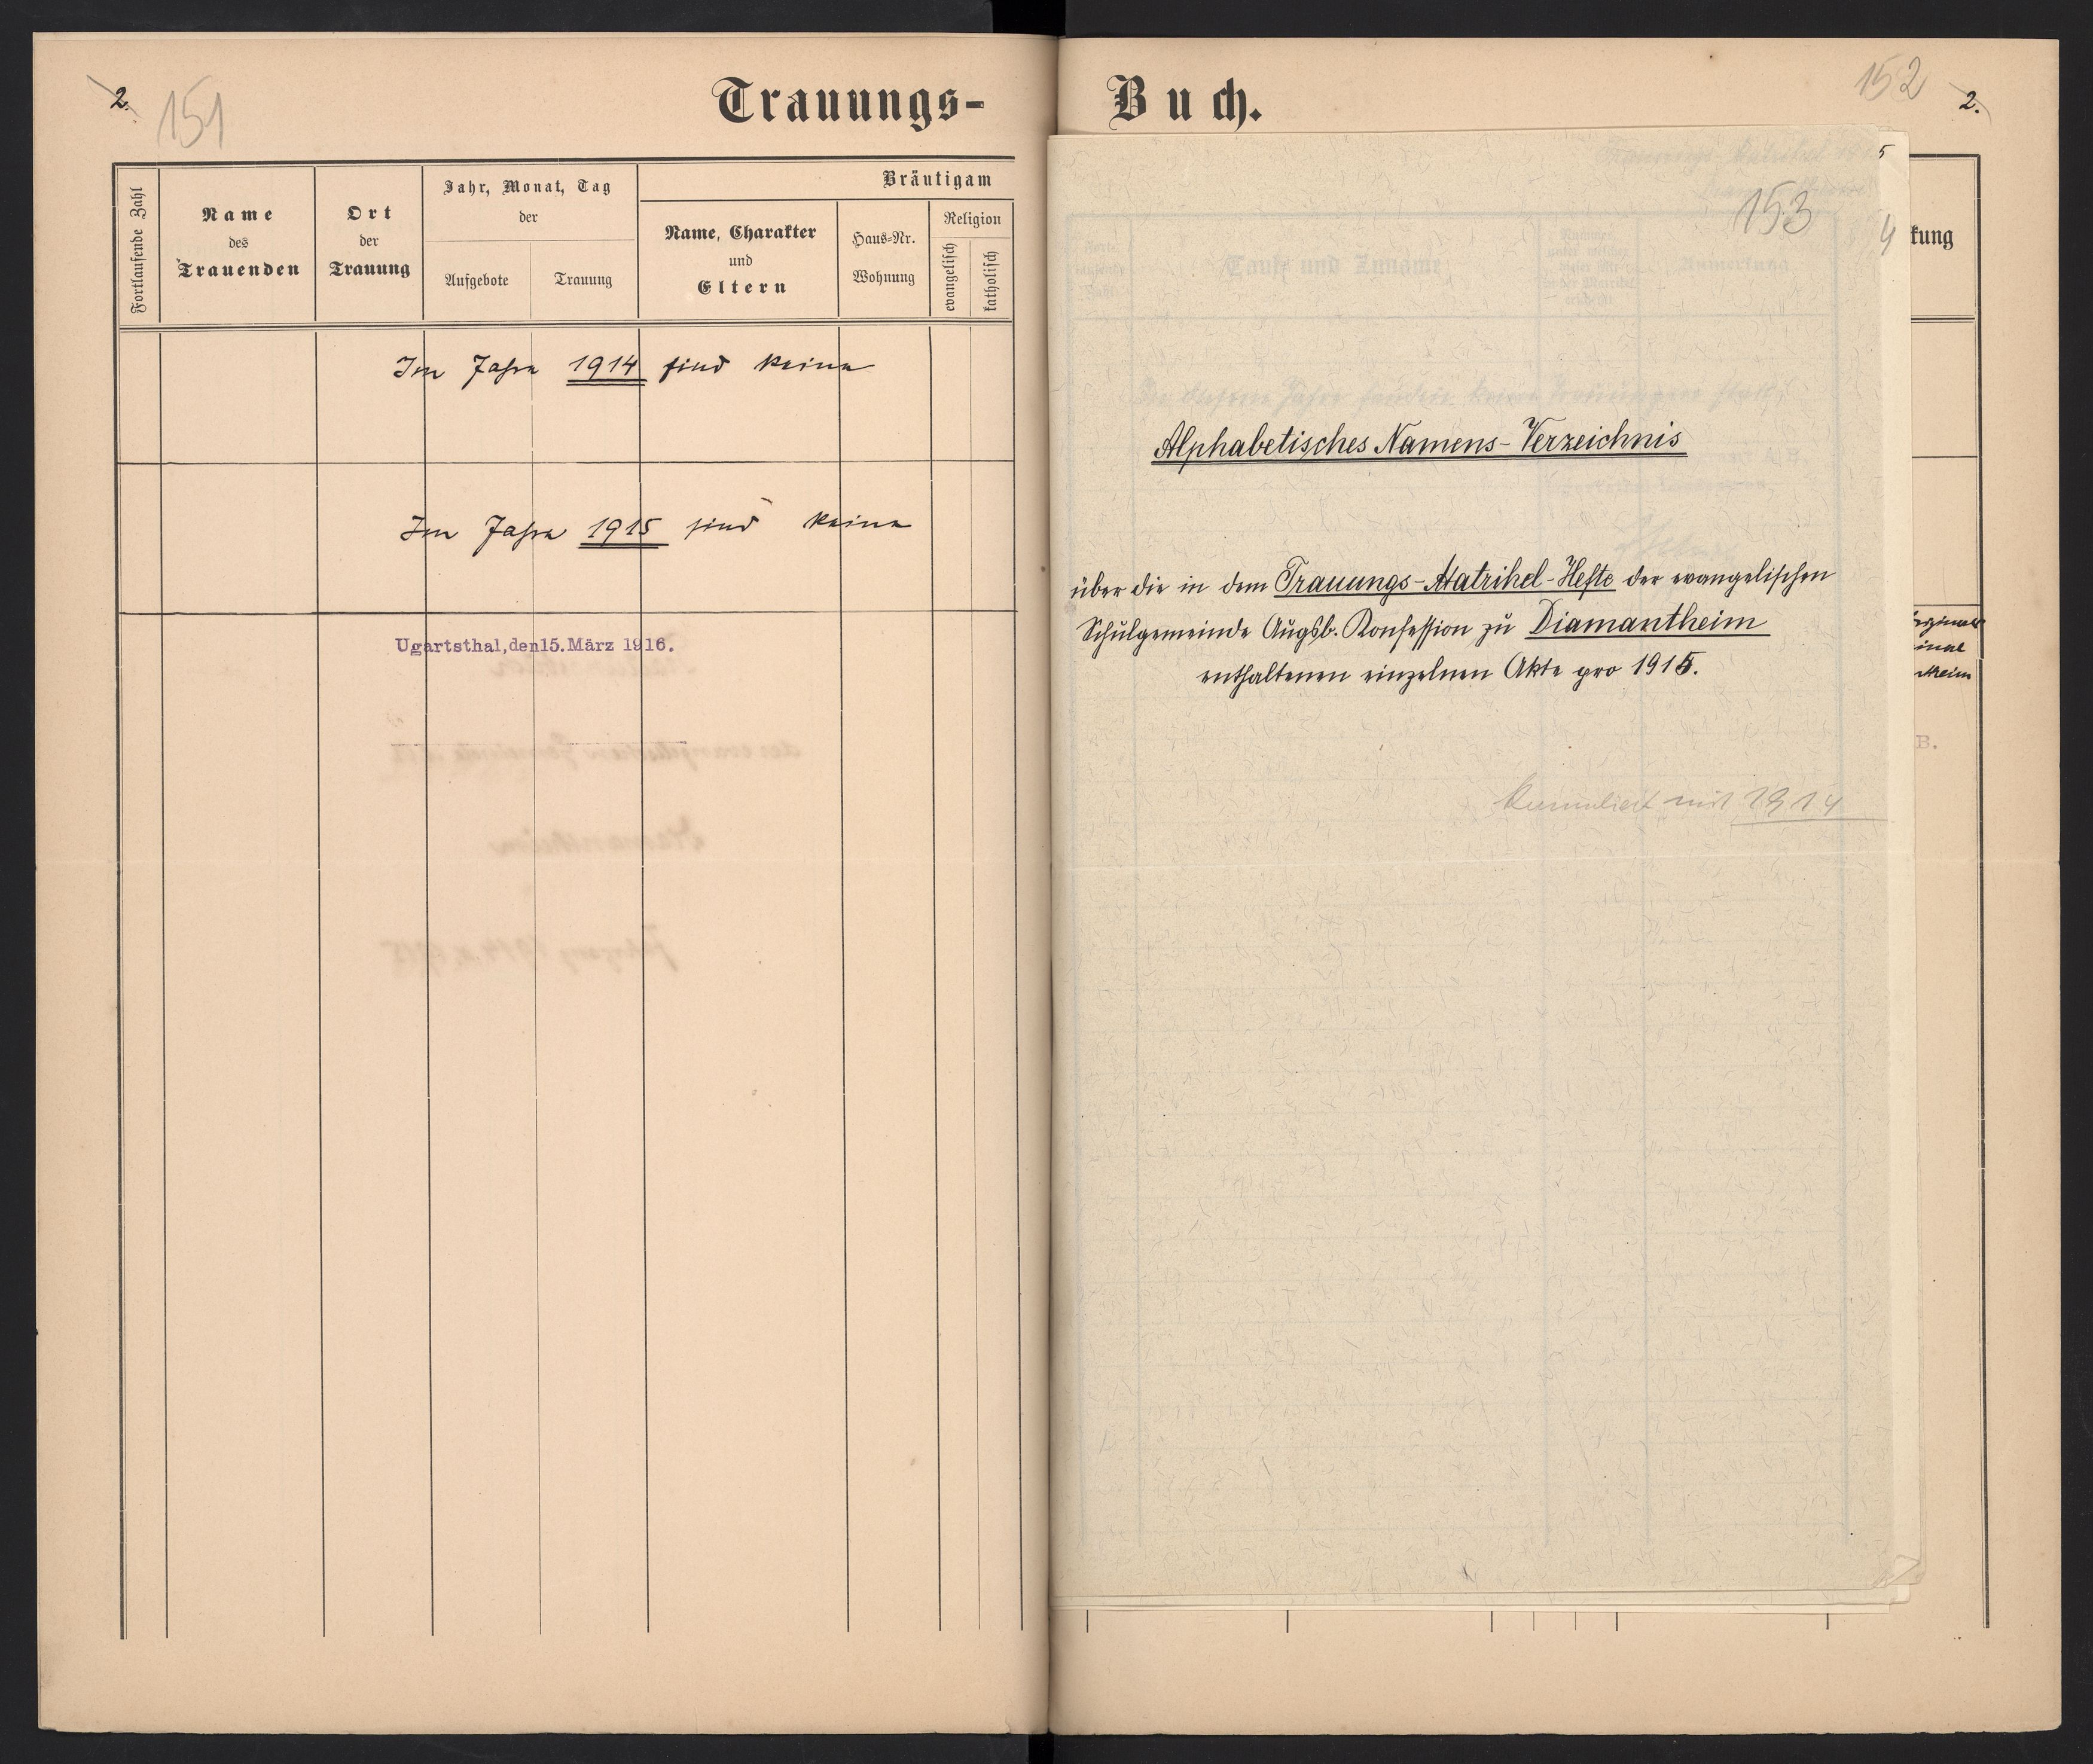 2. 151
Trauungs-
Fortlaufende Zahl
Name
des
Trauenden
Ort
der
Trauung
Jahr, Monat, Tag
der
Aufgebote
Trauung
Bräutigam
Name, Charakter
und
Eltern
Haus-Nr.
Wohnung
Religion
evangelisch
katholisch
Im Jahre 1914 sind keine
Im Jahre 1915 sind keine
Ugartsthal, den 15. März 1916.
Buch.
152 2.
5
153
4
kung
Tauf- und Zuname
Anmerkung
In diesem Jahre fanden keine Trauungen statt.
Alphabetisches Namens-Verzeichnis
über die in dem Trauungs-Matrikel-Hefte der evangelischen
Schulgemeinde Augsb. Konfession zu Diamantheim
enthaltenen einzelnen Akte pro 1915.
kumuliert mit 1914
inal
theim
B.